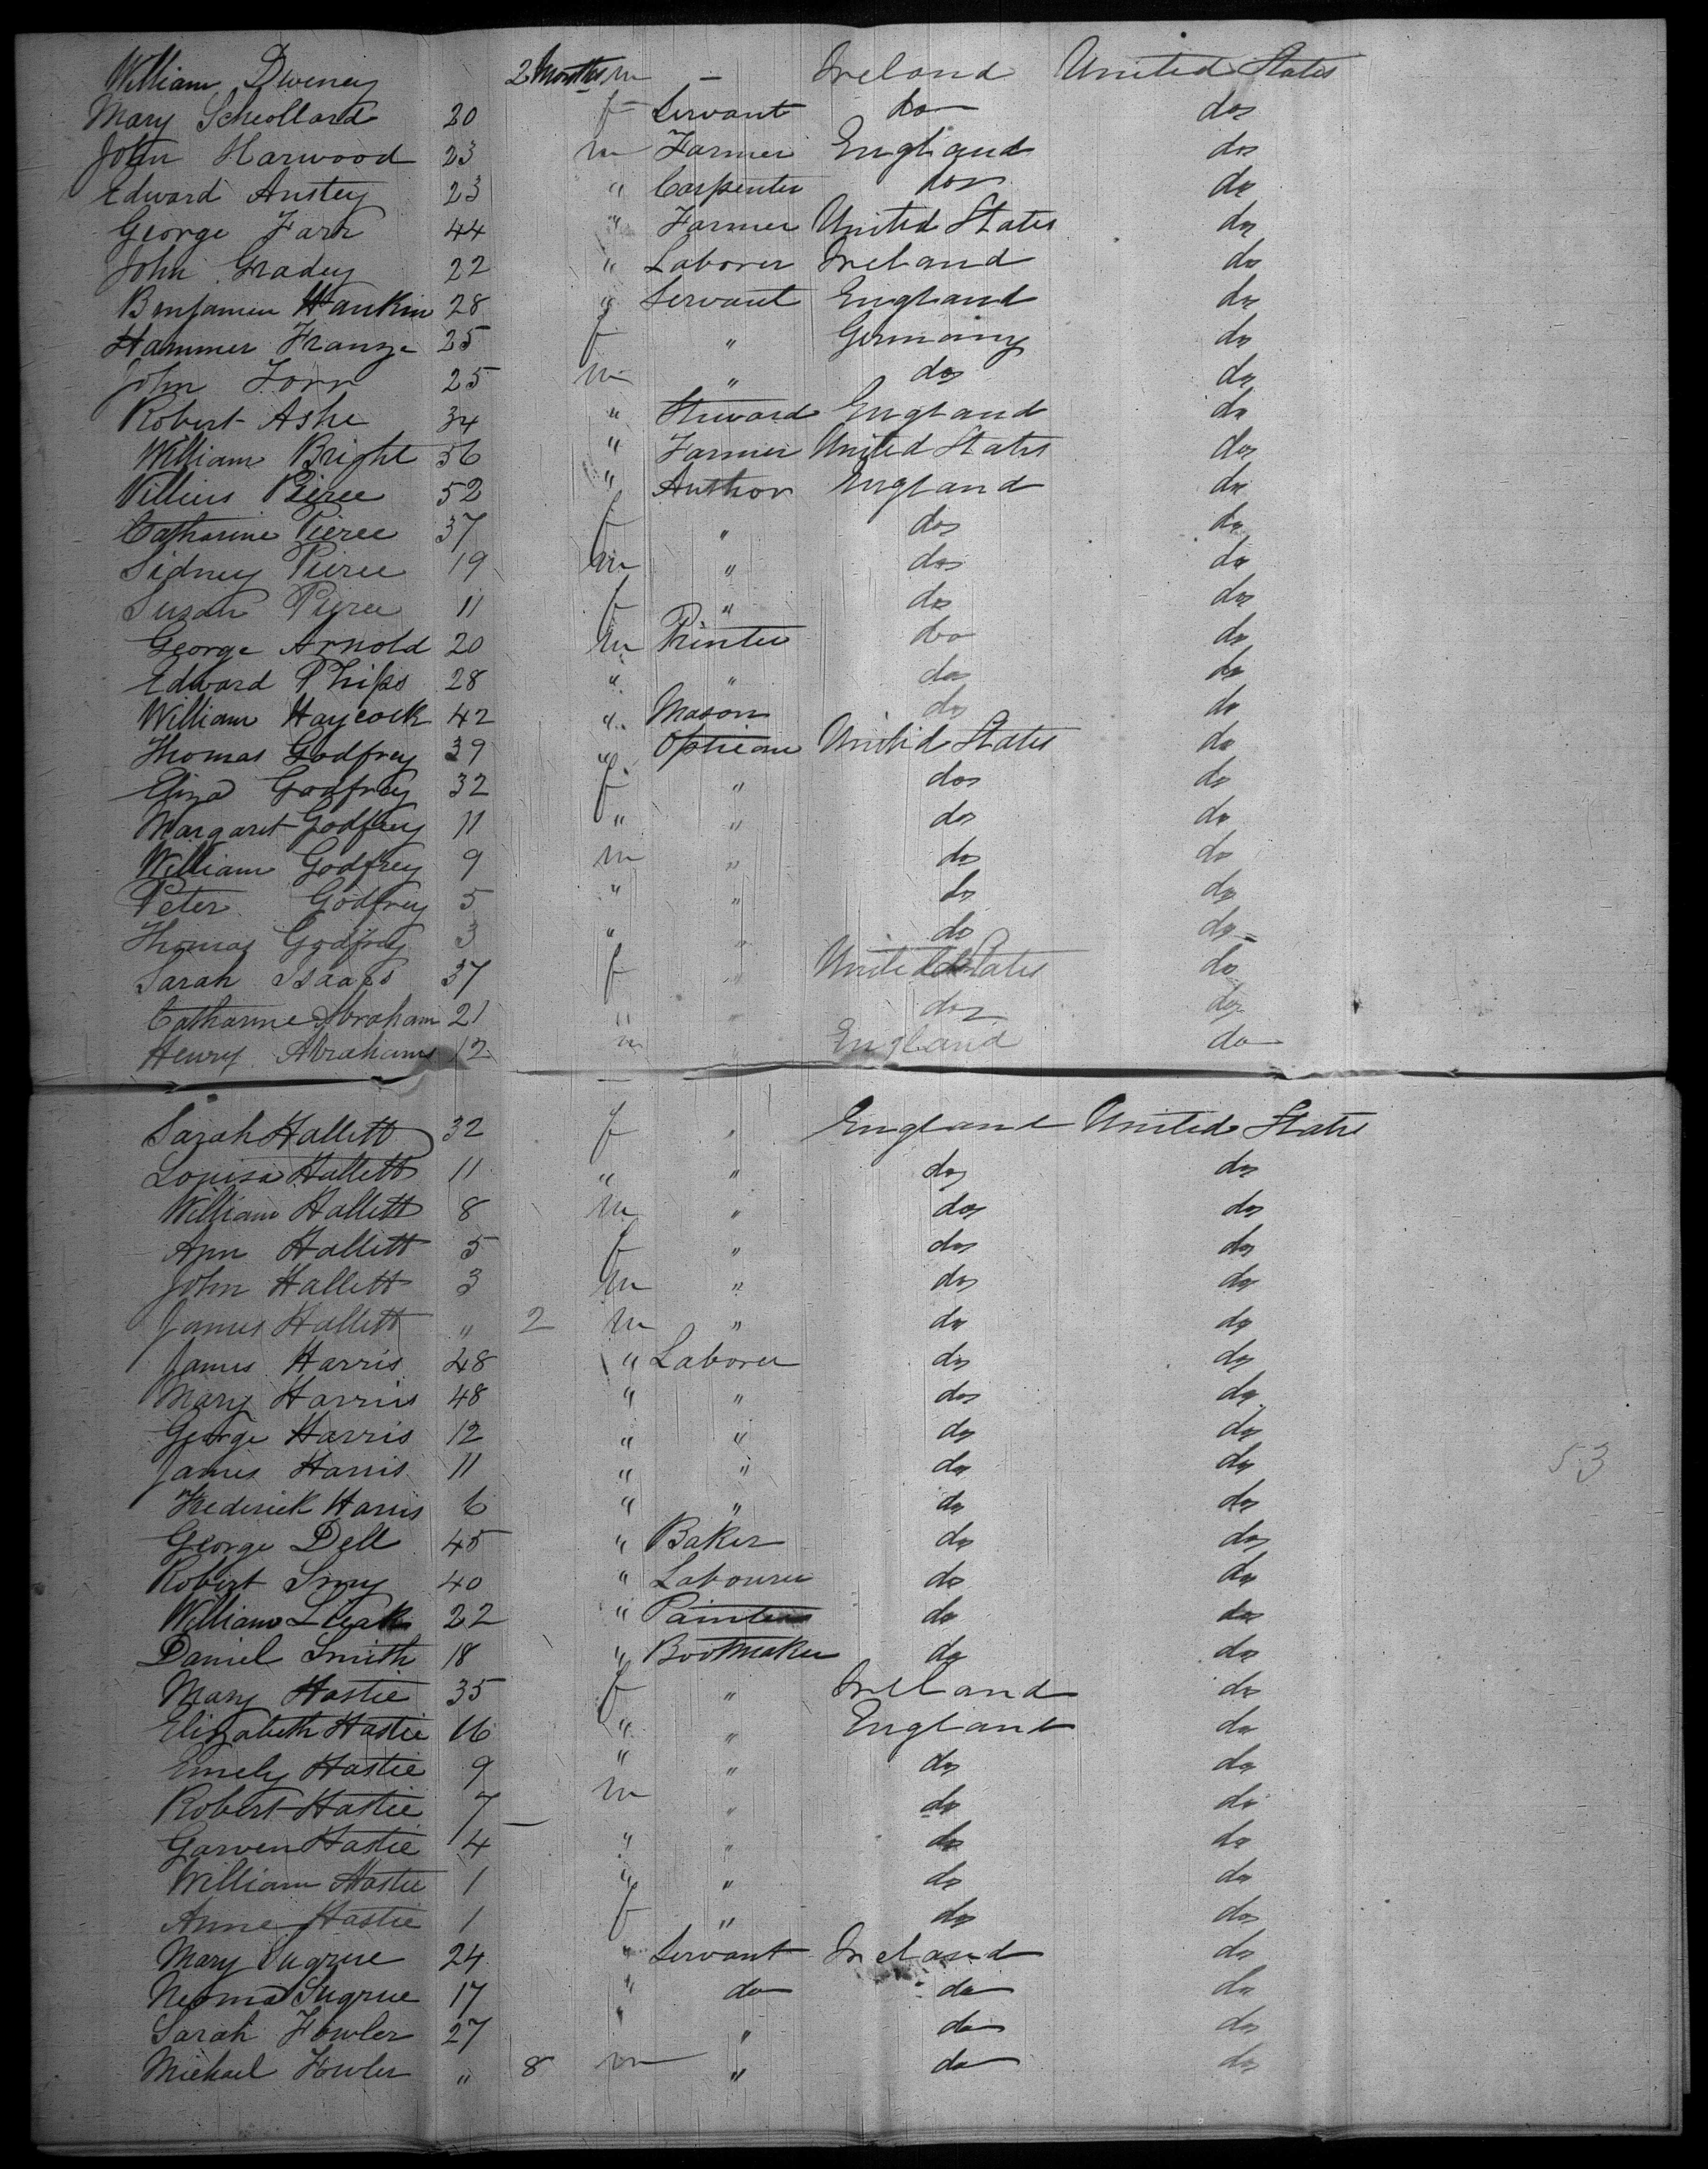 William Dweney 2 Months m – Ireland United States
Mary Schollard 20 f Servant do do
John Harwood 23 m Farmer England do
Edward Anstey 23 " Carpenter do do
George Farr 44 " Farmer United States do
John Gradey 22 " Laborer Ireland do
Benjamin Hankin 28 " Servant England do
Hammer Franze 25 f " Germany do
John Forr 25 m " do do
Robert Ashe 34 " Steward England do
William Bright 56 " Farmer United States do
Villiers Pierce 52 " Author England do
Catharine Pierce 37 f " do do
Sidney Pierce 19 m " do do
Susan Pierce 11 f " do do
George Arnold 20 m Printer do do
Edward Phips 28 " " do do
William Haycock 42 " Mason do do
Thomas Godfrey 39 " Optician United States do
Eliza Godfrey 32 f " do do
Margaret Godfrey 11 " " do do
William Godfrey 9 m " do do
Peter Godfrey 5 " " do do
Thomas Godfrey 3 " " do do
Sarah Isaacs 37 f " United States do
Catharine Abraham 21 " " do do
Henry Abrahams 12 m " England do
Sarah Hallett 32 f " England United States
Louisa Hallett 11 " " do do
William Hallett 8 m " do do
Ann Hallett 5 f " do do
John Hallett 3 m " do do
James Hallett " 2 m " do do
James Harris 48 " Laborer do do
Mary Harris 48 " " do do
George Harris 12 " " do do
James Harris 11 " " do do
53
Frederick Harris 6 " " do do
George Dell 45 " Baker do do
Robert Smy 40 " Labourer do do
William 22 " Painter do do
Daniel Smith 18 " Bootmaker do do
Mary Hastie 35 f " Ireland do
Elizabeth Hastie 16 " " England do
Emely Hastie 9 " " do do
Robert Hastie 7 m " do do
Garven Hastie 4 " " do do
William Hastie 1 " " do do
Anne Hastie 1 f " do do
Mary Sugrue 24 " Servant Ireland do
Sugrue 17 " do do do
Sarah Fowler 27 " " do do
Michael Fowler " 8 m " do do